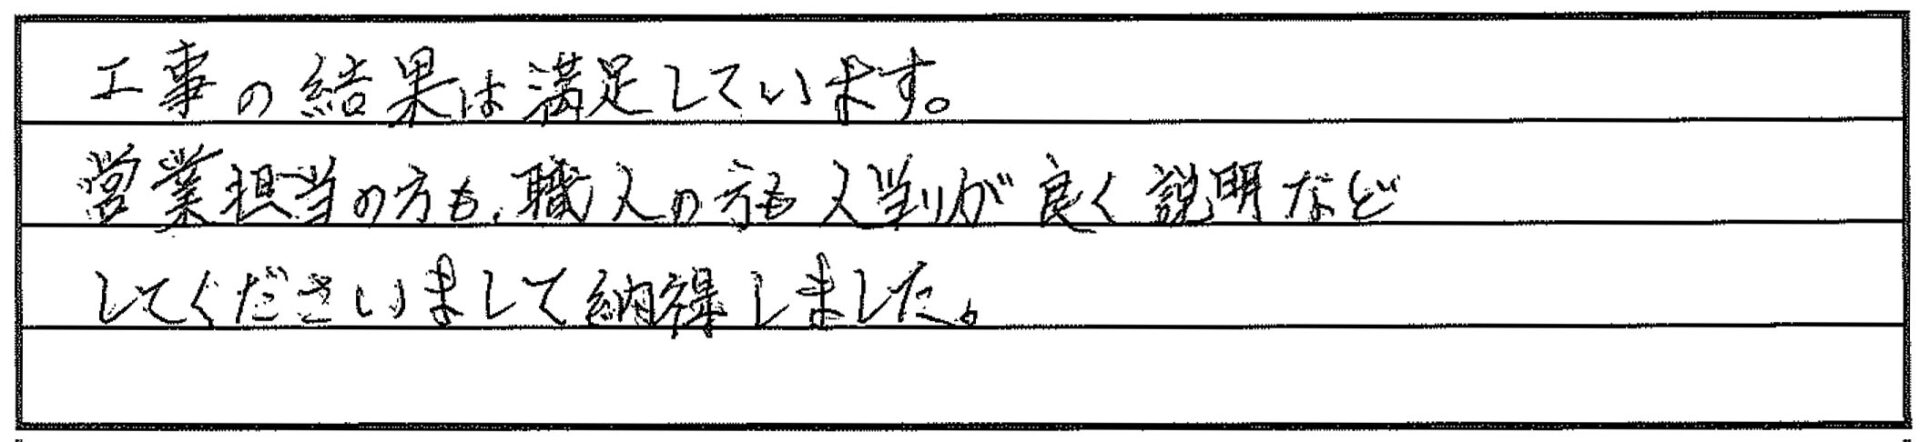 工事の結果は満足しています。
営業担当の方も、職人の方も人当りが良く説明など
してくださいまして納得しました。